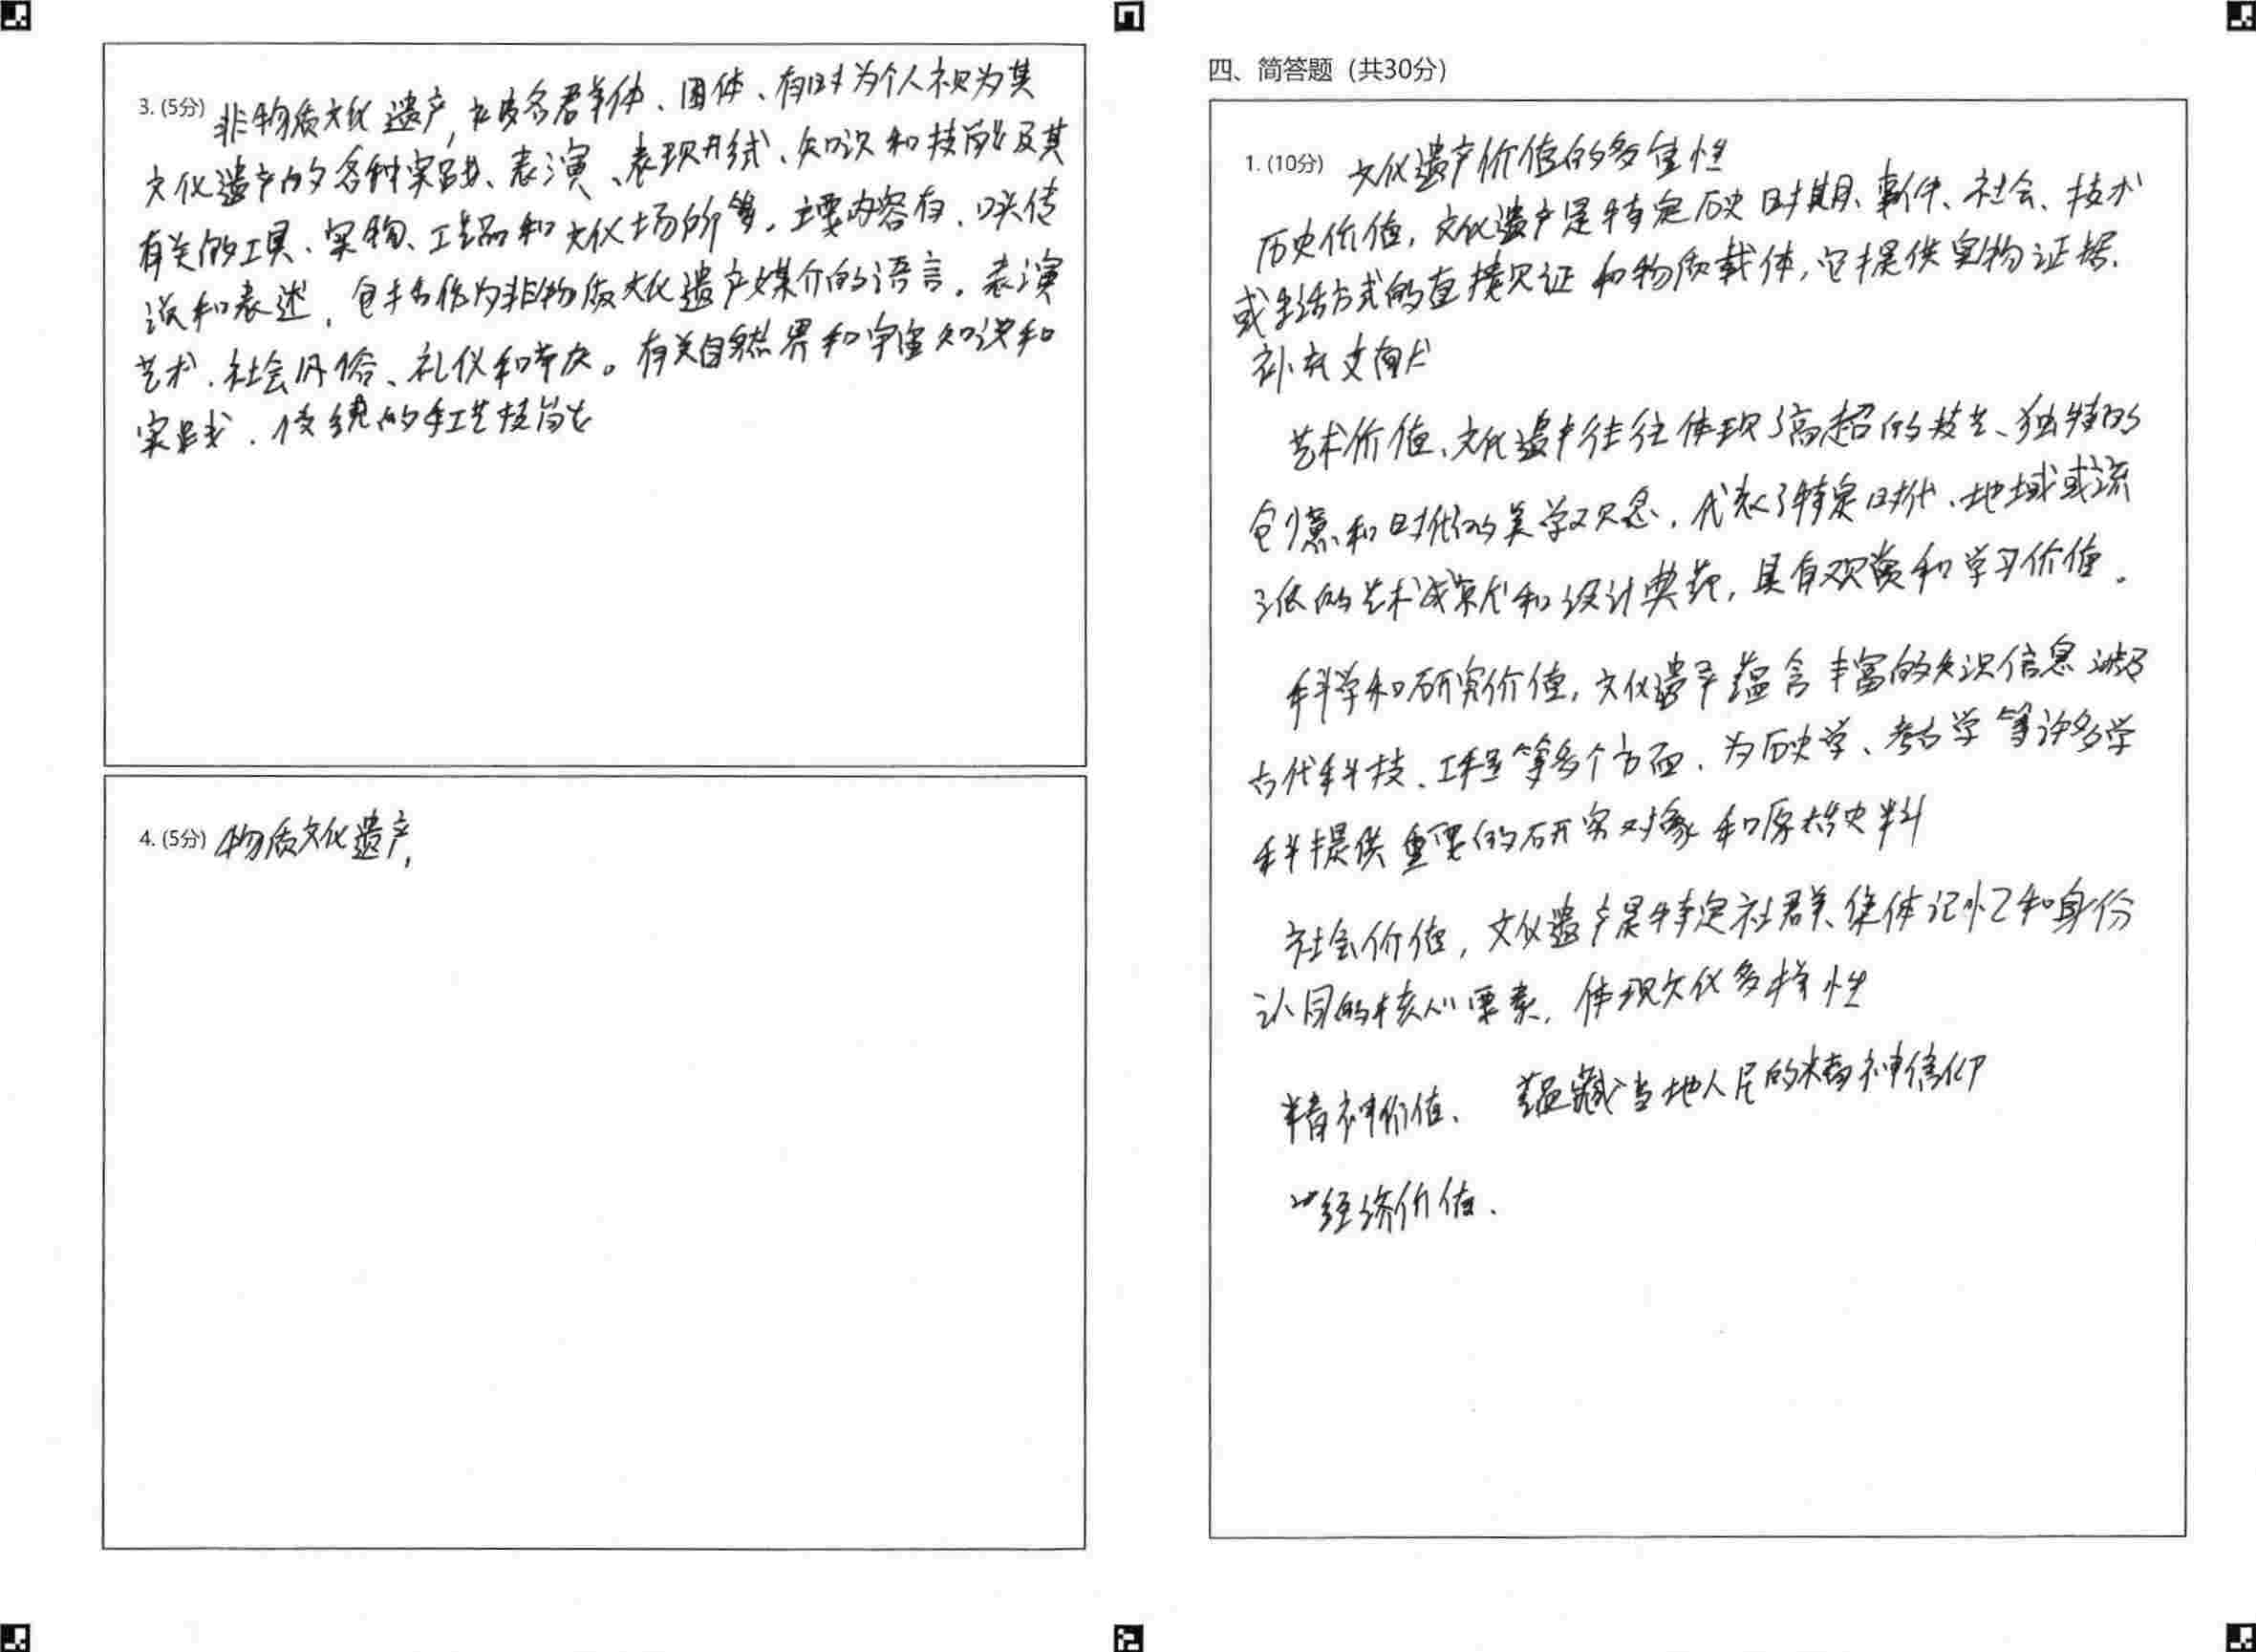 3. (5分) 非物质文化遗产, 被各群体、团体、有时为个人视为其
文化遗产的各种实践、表演、表现形式、知识和技能及其
有关的工具、实物、工艺品和文化场所等。主要内容有, 口头传
说和表述, 包括作为非物质文化遗产媒介的语言。表演
艺术、社会风俗、礼仪和节庆。有关自然界和宇宙知识和
实践、传统的手工艺技能
4. (5分) 物质文化遗产,
四、简答题（共30分）
1. (10分) 文化遗产价值的多重性
历史价值, 文化遗产是特定历史时期、事件、社会、技术
或生活方式的直接见证和物质载体, 它提供实物证据、
补充文献
艺术价值、文化遗产往往体现了高超的技艺、独特的
创意和时代的美学观念, 代表了特定时代、地域或流
派的艺术成就和设计典范, 具有观赏和学习价值。
科学和研究价值, 文化遗产蕴含丰富的知识信息涉及
古代科技、工程等多个方面、为历史学、考古学等许多学
科提供重要的研究对象和原始史料
社会价值, 文化遗产是特定社群、集体记忆和身份
认同的核心要素, 体现文化多样性
精神价值、 蕴藏当地人民的精神信仰
经济价值、